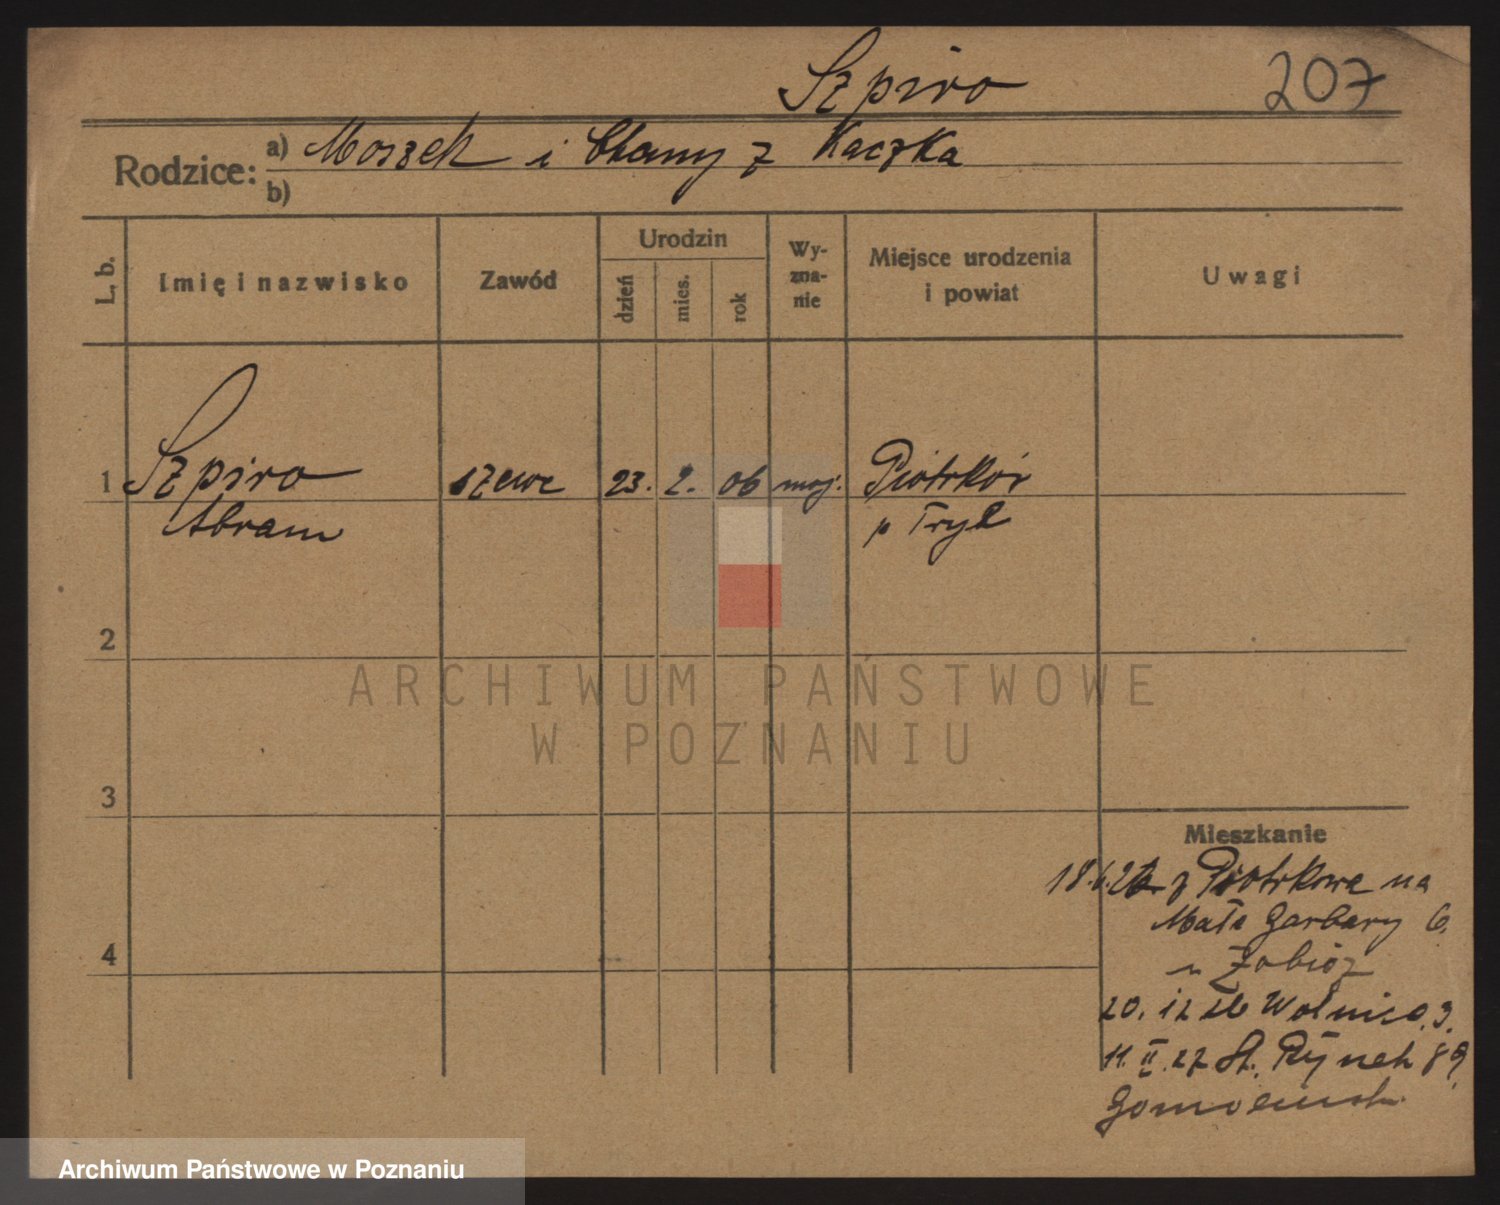 Szpiro 207
Rodzice: a) Moszek i Chany z Kaczka
b)
L. b. Imię i nazwisko Zawód Urodzin dzień mies. rok Wy-zna-nie Miejsce urodzenia i powiat Uwagi
1 Szpiro szewc 23. 2. 06 moj. Piotrków
Abram p Tryb
2
ARCHIWUM PAŃSTWOWE
W POZNANIU
3
Mieszkanie
18.6.26 z Piotrkowa na
Małe Garbary 6
u
4
20. 12 26 Wolnica 3.
11. II. 27 St. Rynek 89
Archiwum Państwowe w Poznaniu